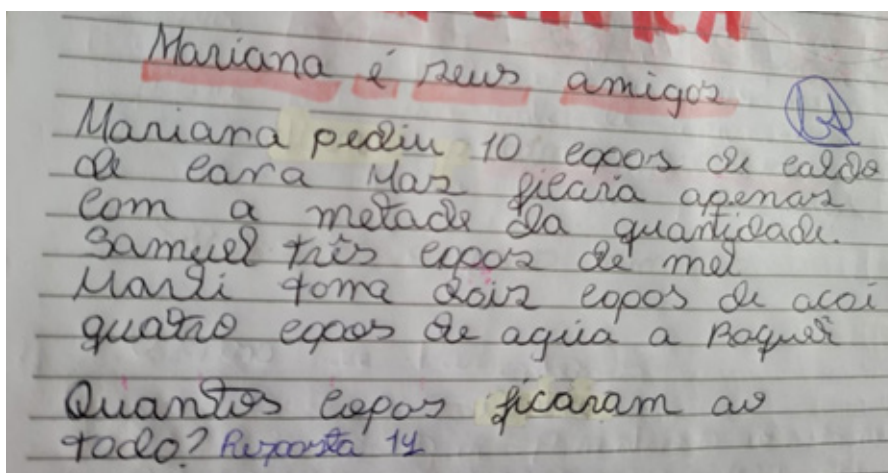 Mariana é seus amigos
Mariana pediu 10 copos de caldo
de cana Mas ficará apenas
com a metade da quantidade.
Samuel três copos de mel
Marli toma dois copos de acoí
quatro copos de agúa a Raquel
Quantos copos ficaram ao
todo? Resposta 14